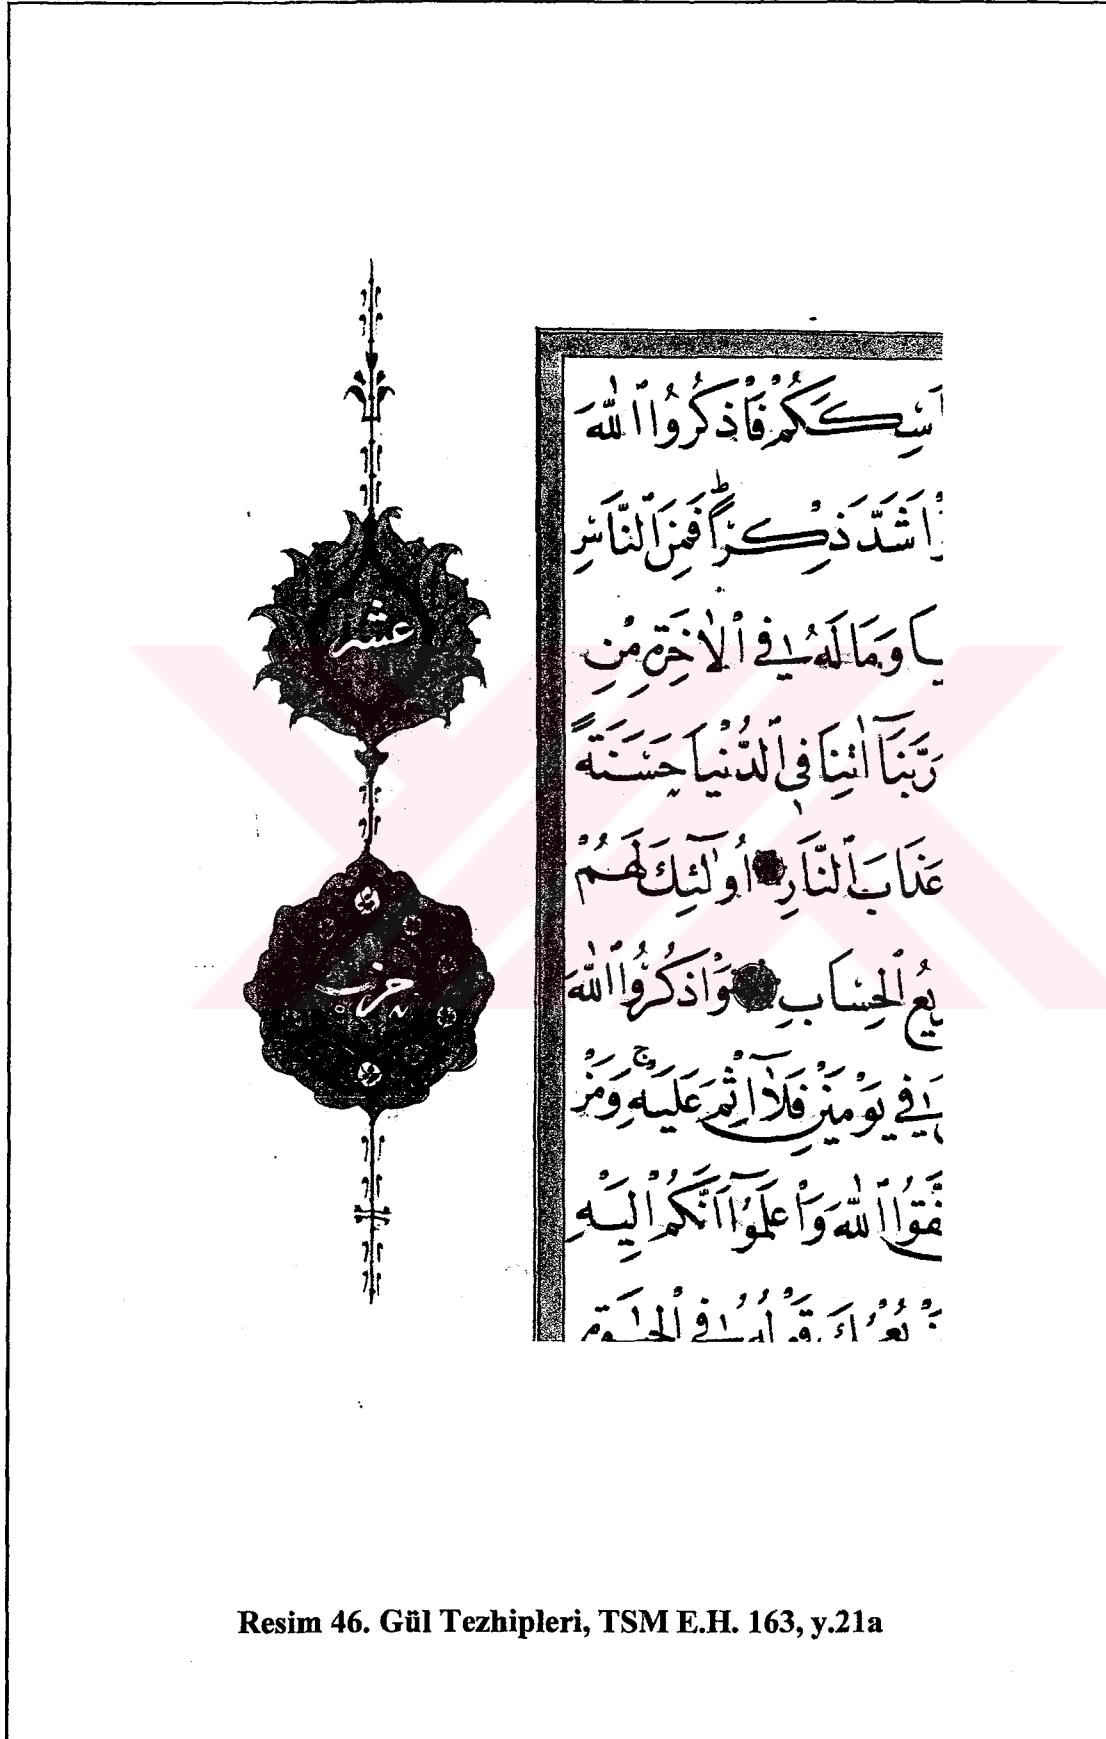 عشر
حزب
اسِكَكُمْ فَاذْكُرُوا اللّٰهَ
اَشَدَّ ذِكْرًاۜ فَمِنَ النَّاسِ
يَا وَمَا لَهُ فِي الْاٰخِرَةِ مِنْ
رَبَّنَآ اٰتِنَا فِي الدُّنْيَا حَسَنَةً
عَذَابَ النَّارِ اُولٰٓئِكَ لَهُمْ
يعُ الْحِسَابِ وَاذْكُرُوا اللّٰهَ
فِي يَوْمَيْنِ فَلَآ اِثْمَ عَلَيْهِۚ وَمَنْ
تَّقُوا اللّٰهَ وَاعْلَمُوٓا اَنَّكُمْ اِلَيْهِ
Resim 46. Gül Tezhipleri, TSM E.H. 163, y.21a